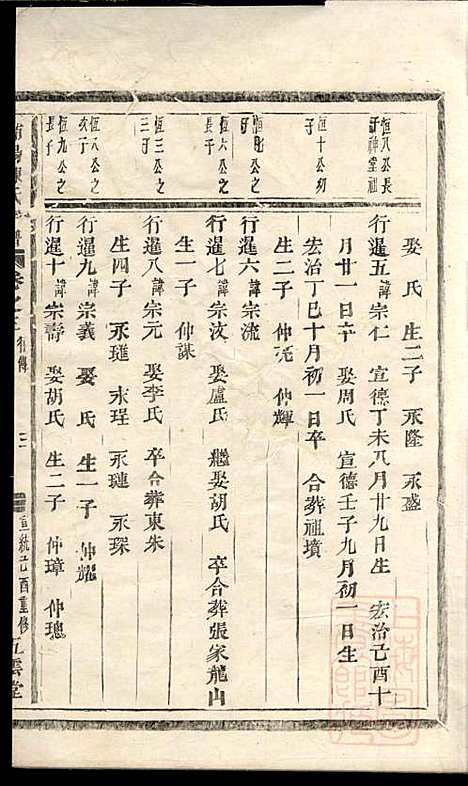 娶 氏 生二子 永隆 永盛
恆八公長子神堂祖
行暹五 諱宗仁 宣德丁未八月廿九日生 宏治己酉十
月廿一日卒 娶周氏 宣德壬子九月初一日生
恆十公幼子
宏治丁巳十月初一日卒 合葬祖墳
生二子 仲玩 仲輝
公之子
行暹六 諱宗流
恆六公之長子
行暹七 諱宗汝 娶盧氏 繼娶胡氏 卒合葬張家龍山
生一子 仲謀
恆三公之三子
行暹八 諱宗元 娶李氏 卒合葬東朱
生四子 永璀 永珵 永璉 永琛
恆公之亥子
行暹九 諱宗義 娶 氏 生一子 仲耀
恆九公之長子
行暹十 諱宗壽 娶胡氏 生二子 仲璋 仲璁
陽 氏 譜 卷之三 行傳 三 宣統己酉重修 五雲堂